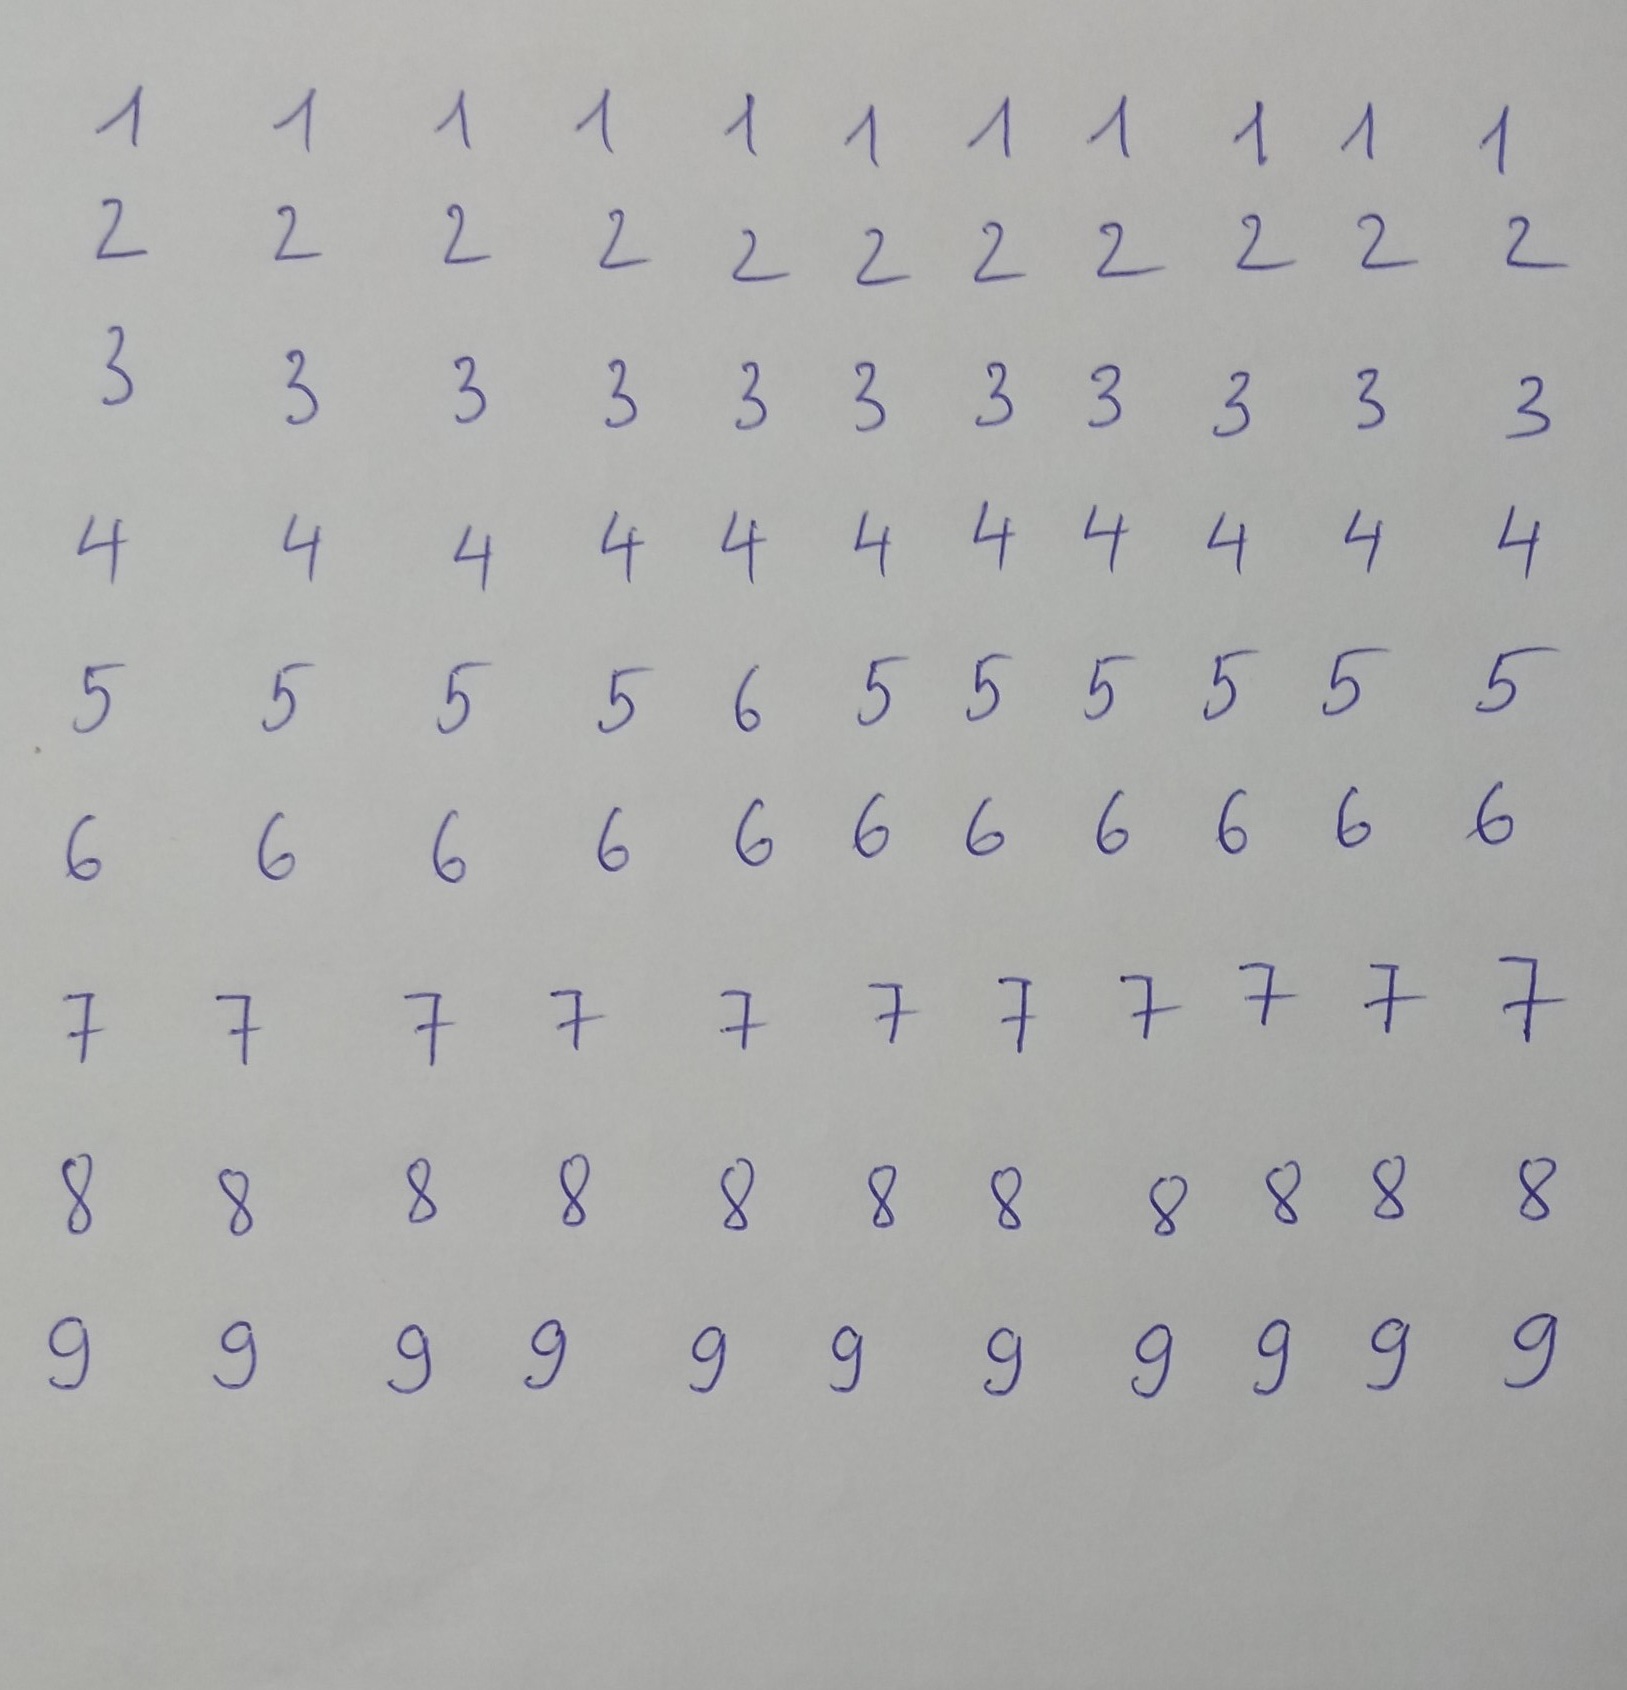 1 1 1 1 1 1 1 1 1 1 1
2 2 2 2 2 2 2 2 2 2 2
3 3 3 3 3 3 3 3 3 3 3
4 4 4 4 4 4 4 4 4 4 4
5 5 5 5 6 5 5 5 5 5 5
6 6 6 6 6 6 6 6 6 6 6
7 7 7 7 7 7 7 7 7 7 7
8 8 8 8 8 8 8 8 8 8 8
9 9 9 9 9 9 9 9 9 9 9